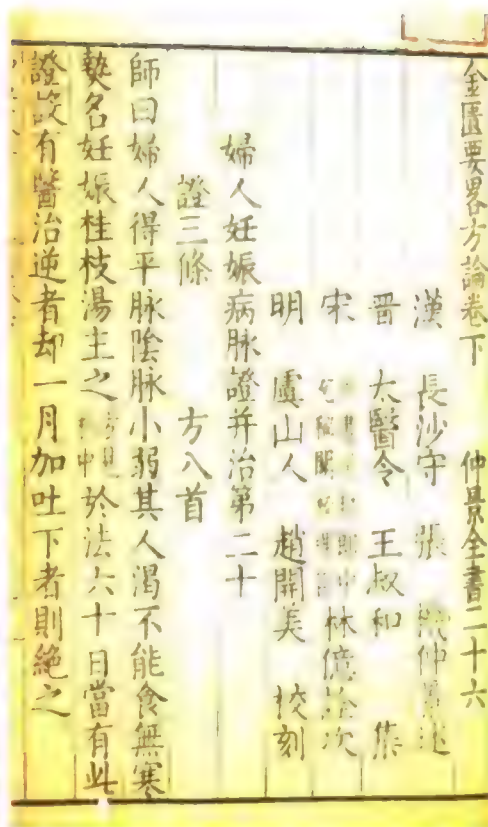 金匱要畧方論卷下　仲景全書二十六
漢　長沙守　張　機仲景述
晉　太醫令　王叔和　集
宋　林億詮次
明　虞山人　趙開美　校刻
婦人妊娠病脉證并治第二十
證三條　方八首
師曰婦人得平脉陰脉小弱其人渴不能食無寒
熱名妊娠桂枝湯主之方見中於法六十日當有此
證設有醫治逆者却一月加吐下者則絕之